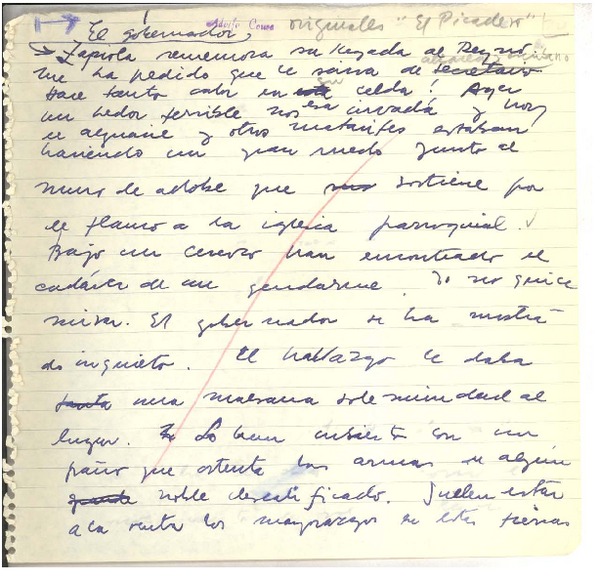 Adolfo Couve originales "El Picadero"
El gobernador,
Zapiola rememora su llegada al Reyno.
me ha pedido que le sirva de secretario
Hace tanto calor en su celda! Ayer
un hedor terrible nos invadía y hoy
el alguacil y otros matarifes estaban
haciendo un gran ruedo junto al
muro de adobe que sostiene por
el flanco a la iglesia parroquial.
Bajo un cerezo han encontrado el
cadáver de un gendarme. Yo no quise
mirar. El gobernador se ha mostra
do inquieto. El hallazgo le daba
tanta una malsana solemnidad al
lugar. Lo han cubierto con un
paño que ostenta las armas de algún
noble descalificado. Suelen estar
a la venta los mayorazgos en estas tierras